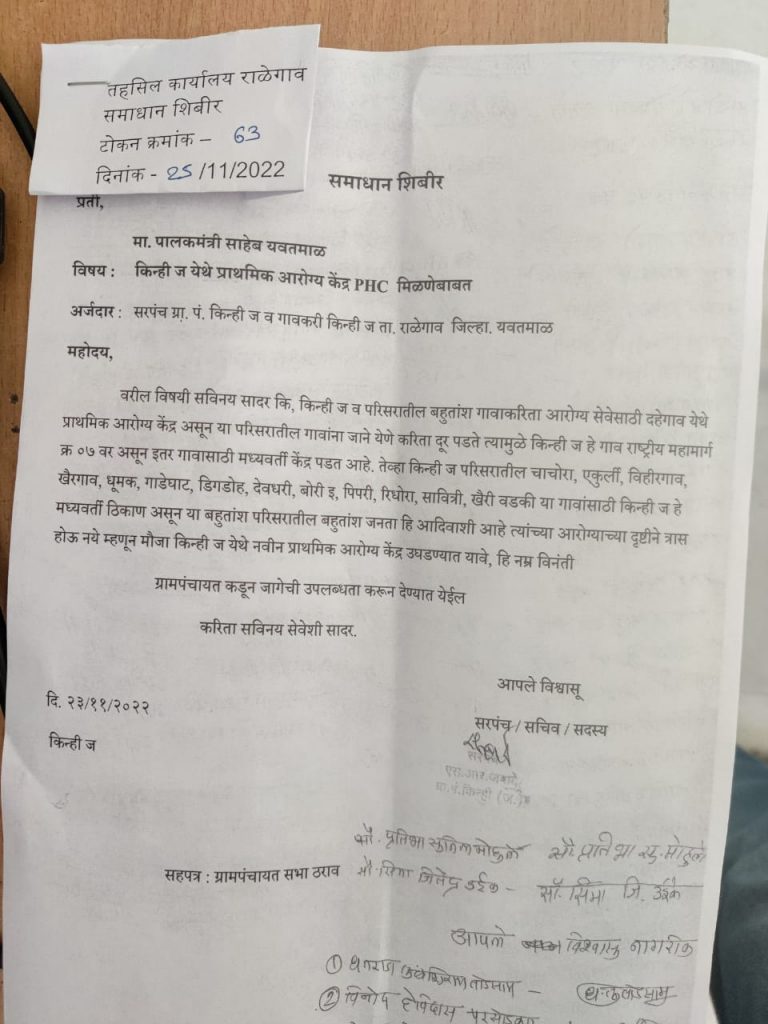 तहसिल कार्यालय राळेगाव
समाधान शिबीर
टोकन क्रमांक – 63
दिनांक - 25 /11/2022
समाधान शिबीर
प्रती,
मा. पालकमंत्री साहेब यवतमाळ
विषय : किन्ही ज येथे प्राथमिक आरोग्य केंद्र PHC मिळणेबाबत
अर्जदार : सरपंच ग्रा. पं. किन्ही ज व गावकरी किन्ही ज ता. राळेगाव जिल्हा. यवतमाळ
महोदय,
वरील विषयी सविनय सादर कि, किन्ही ज व परिसरातील बहुतांश गावाकरिता आरोग्य सेवेसाठी दहेगाव येथे
प्राथमिक आरोग्य केंद्र असून या परिसरातील गावांना जाने येणे करिता दूर पडते त्यामुळे किन्ही ज हे गाव राष्ट्रीय महामार्ग
क्र ०७ वर असून इतर गावासाठी मध्यवर्ती केंद्र पडत आहे. तेव्हा किन्ही ज परिसरातील चाचोरा, एकुर्ली, विहीरगाव,
खैरगाव, धूमक, गाडेघाट, डिगडोह, देवधरी, बोरी इ, पिपरी, रिधोरा, सावित्री, खैरी वडकी या गावांसाठी किन्ही ज हे
मध्यवर्ती ठिकाण असून या बहुतांश परिसरातील बहुतांश जनता हि आदिवाशी आहे त्यांच्या आरोग्याच्या दृष्टीने त्रास
होऊ नये म्हणून मौजा किन्ही ज येथे नवीन प्राथमिक आरोग्य केंद्र उघडण्यात यावे, हि नम्र विनंती
ग्रामपंचायत कडून जागेची उपलब्धता करून देण्यात येईल
करिता सविनय सेवेशी सादर.
आपले विश्वासू
दि. २३/११/२०२२
सरपंच / सचिव / सदस्य
किन्ही ज
ग्रा.पं.किन्ही (ज.)
सौ. प्रतिभा
सहपत्र : ग्रामपंचायत सभा ठराव
सौ. सिमा जि. उईके
आपले विश्वासु नागरीक
①
② विनोद